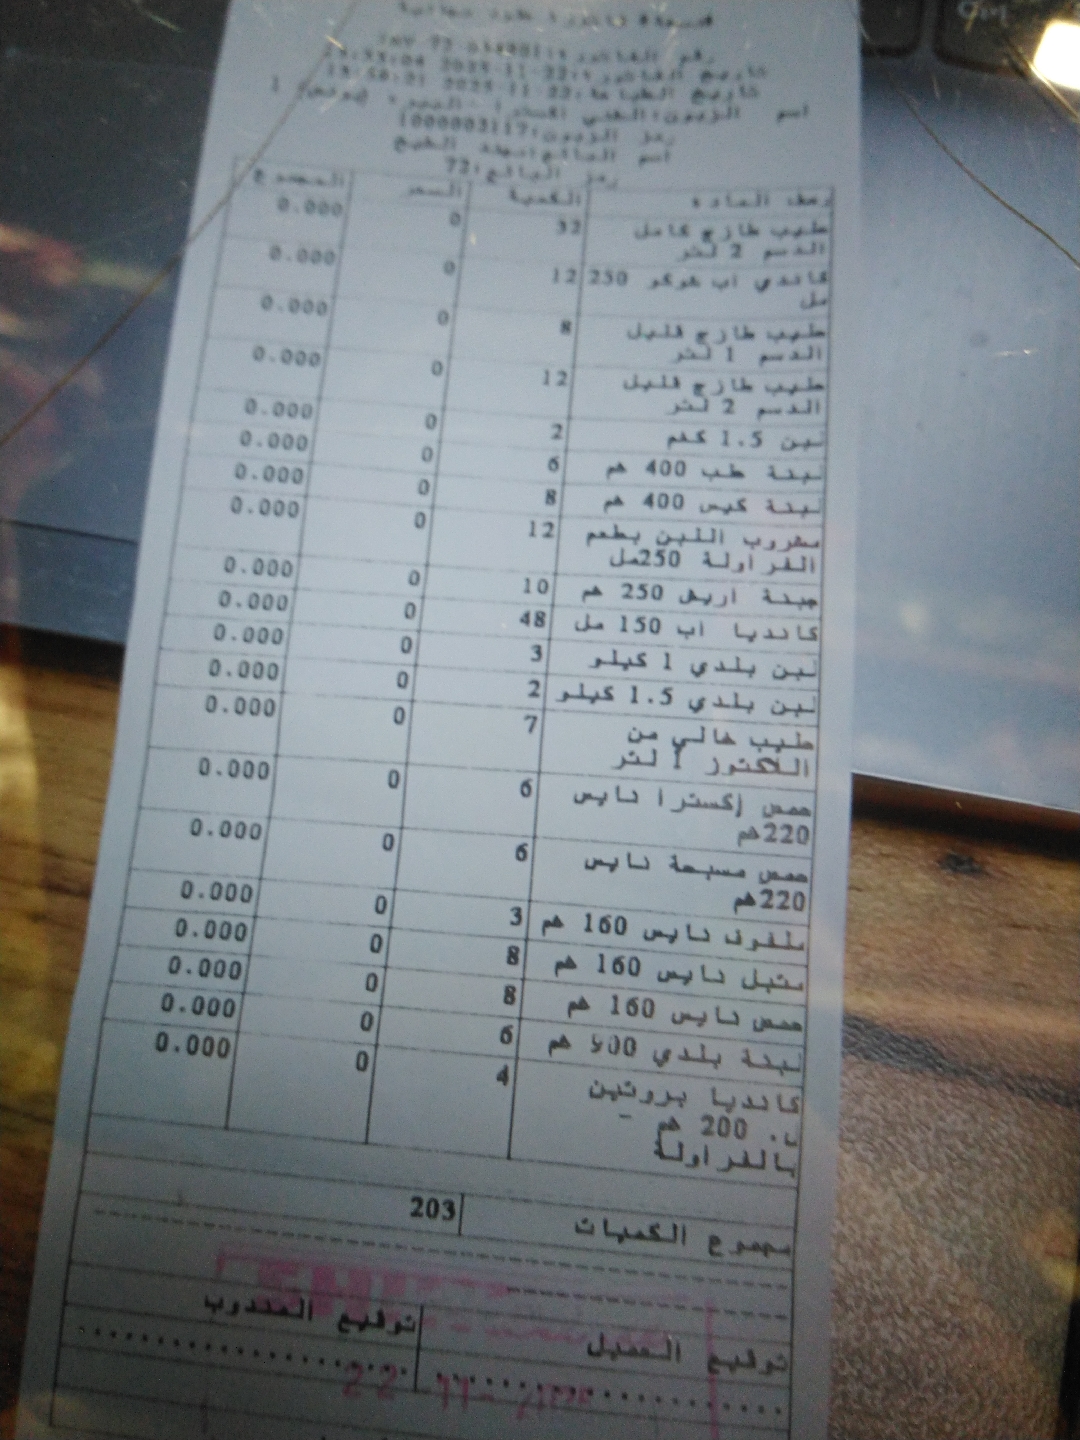 رقم الفاتورة:
تاريخ الفاتورة: 2025-11-22
تاريخ الطباعة: 2025-11-22
اسم الزبون:
رمز الزبون:1000003117
اسم البائع:مهند الشيخ
رمز البائع:72
وصف المادة الكمية السعر المجموع
حليب طازج كامل 32 0 0.000
الدسم 2 لتر
كاندي اب شوكو 250 12 0 0.000
مل
حليب طازج قليل 8 0 0.000
الدسم 1 لتر
حليب طازج قليل 12 0 0.000
الدسم 2 لتر
لبن 1.5 كغم 2 0 0.000
لبنة طب 400 غم 6 0 0.000
لبنة كيس 400 غم 8 0 0.000
مشروب اللبن بطعم 12 0 0.000
الفراولة 250مل
جبنة اريش 250 غم 10 0 0.000
كانديا اب 150 مل 48 0 0.000
لبن بلدي 1 كيلو 3 0 0.000
لبن بلدي 1.5 كيلو 2 0 0.000
حليب خالي من 7 0 0.000
اللاكتوز 1 لتر
حمص إكسترا نايس 6 0 0.000
220غم
حمص مسبحة نايس 6 0 0.000
220غم
ملفوف نايس 160 غم 3 0 0.000
متبل نايس 160 غم 8 0 0.000
حمص نايس 160 غم 8 0 0.000
لبنة بلدي غم 6 0 0.000
كانديا بروتين 4 0 0.000
200 غم
بالفراولة
مجموع الكميات 203
توقيع العميل توقيع المندوب